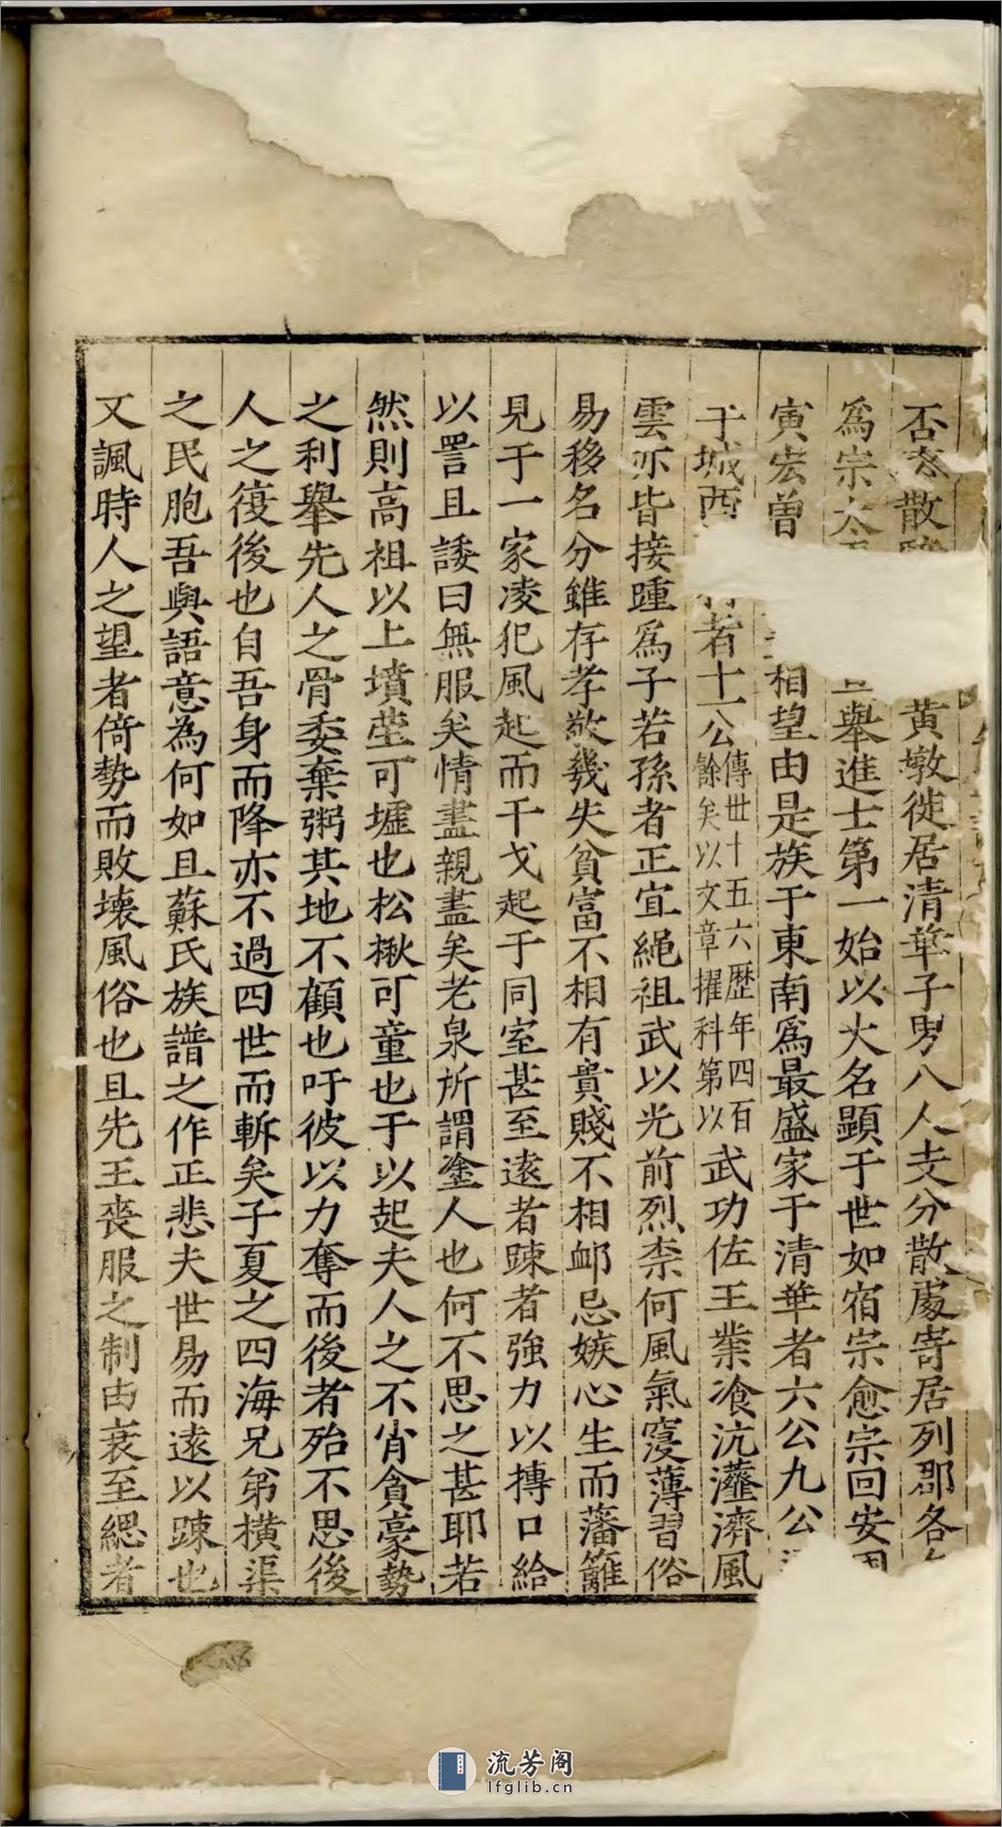 否 散 黄墩徙居清華子男八人支分散處寄居列郡各
爲宗 舉進士第一始以大名顯于世如宿宗愈宗回安
寅宏曽 相望由是族于東南爲最盛家于清華者六公九公
于城西 者十一公傳世十五六歷年四百餘矣以文章擢科第以武功佐王業飡沆瀣濟風
雲亦皆接踵爲子若孫者正宜繩祖武以光前烈柰何風氣寖薄習俗
易移名分雖存孝敬幾失貧富不相有貴賤不相䘏忌嫉心生而藩籬
見于一家凌犯風起而干戈起于同室甚至遠者踈者強力以摶口給
以詈且諉曰無服矣情盡親盡矣老泉所謂塗人也何不思之甚耶若
然則高祖以上墳塋可墟也松楸可童也于以起夫人之不肖貪豪勢
之利舉先人之骨委棄粥其地不顧也吁彼以力奪而後者殆不思後
人之復後也自吾身而降亦不過四世而斬矣子夏之四海兄弟橫渠
之民胞吾與語意為何如且蘇氏族譜之作正悲夫世易而遠以踈也
又諷時人之望者倚勢而敗壊風俗也且先王喪服之制由衰至緦者
流芳阁
lfglib.cn